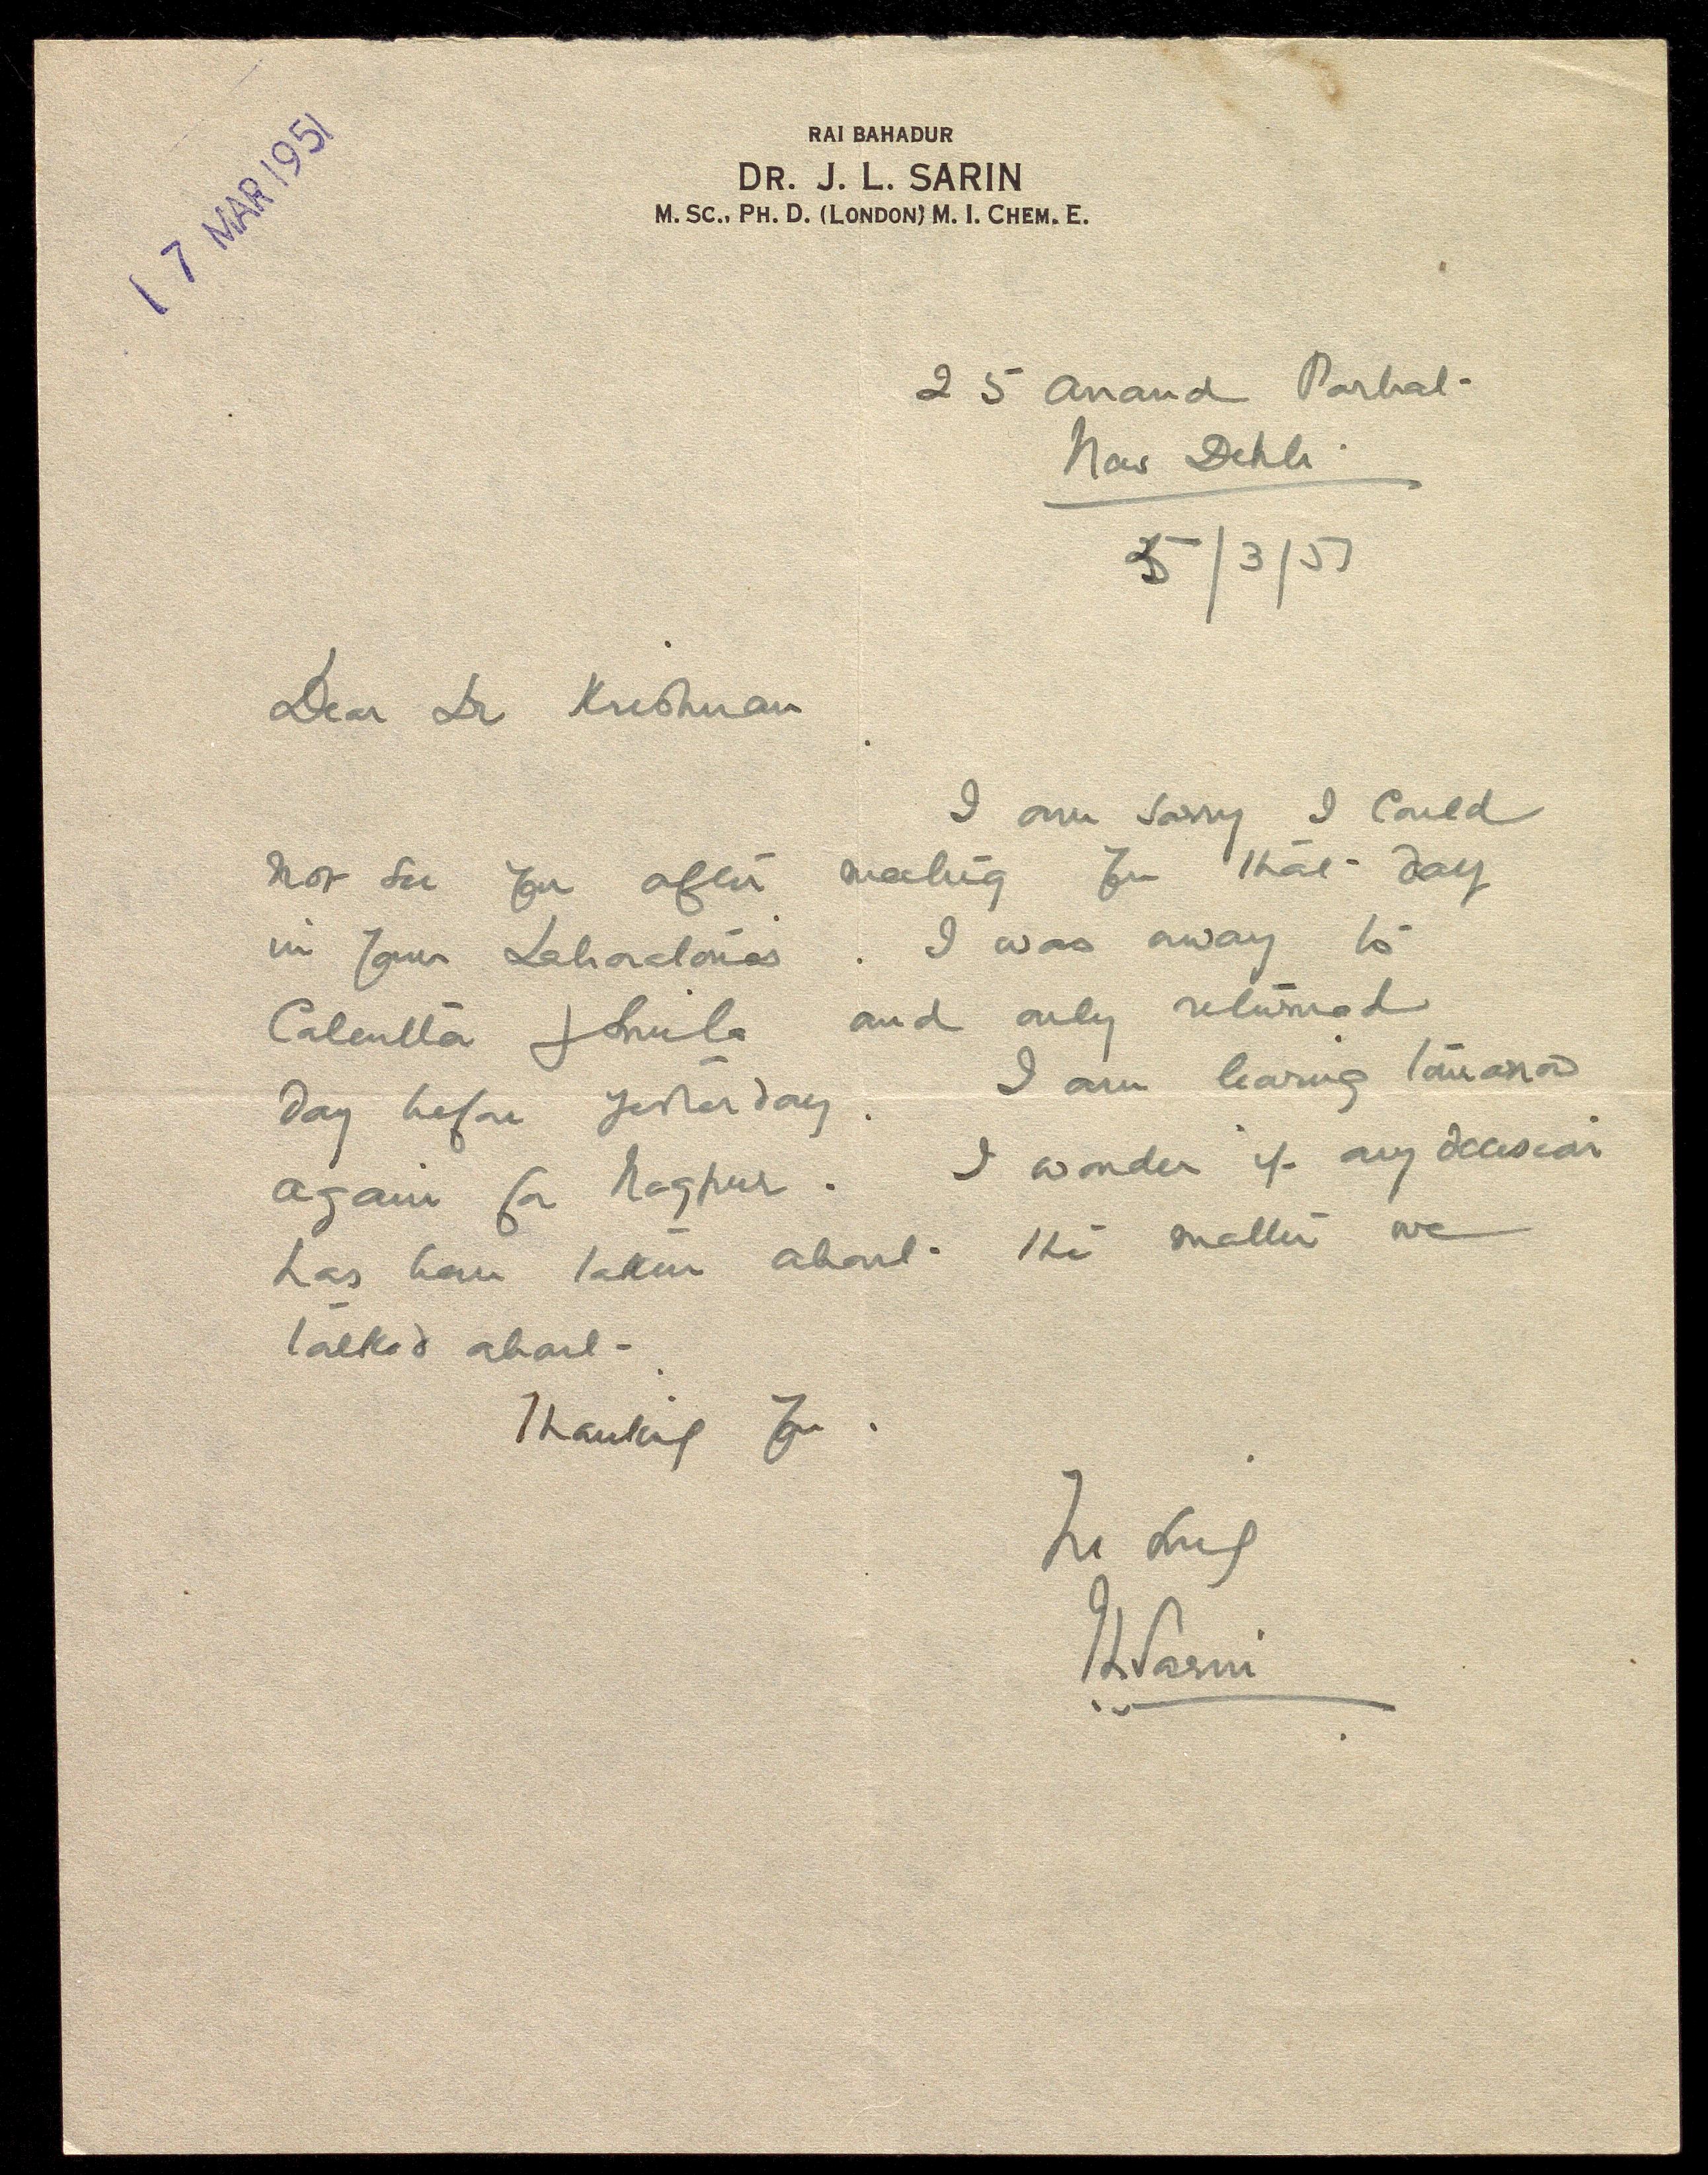 17 MAR 1951
RAI BAHADUR
DR. J. L. SARIN
M. SC., PH. D. (LONDON) M. I. CHEM. E.
25 Anand Parbat
New Delhi
5/3/51
Dear Dr Krishnan
I am sorry I could
not see you after meeting you that day
in your Laboratories. I was away to
Calcutta & Simla and only returned
day before yesterday. I am leaving tomorrow
again for Nagpur. I wonder if any decision
has been taken about the matter we
talked about-
Thanking you.
JLSarin